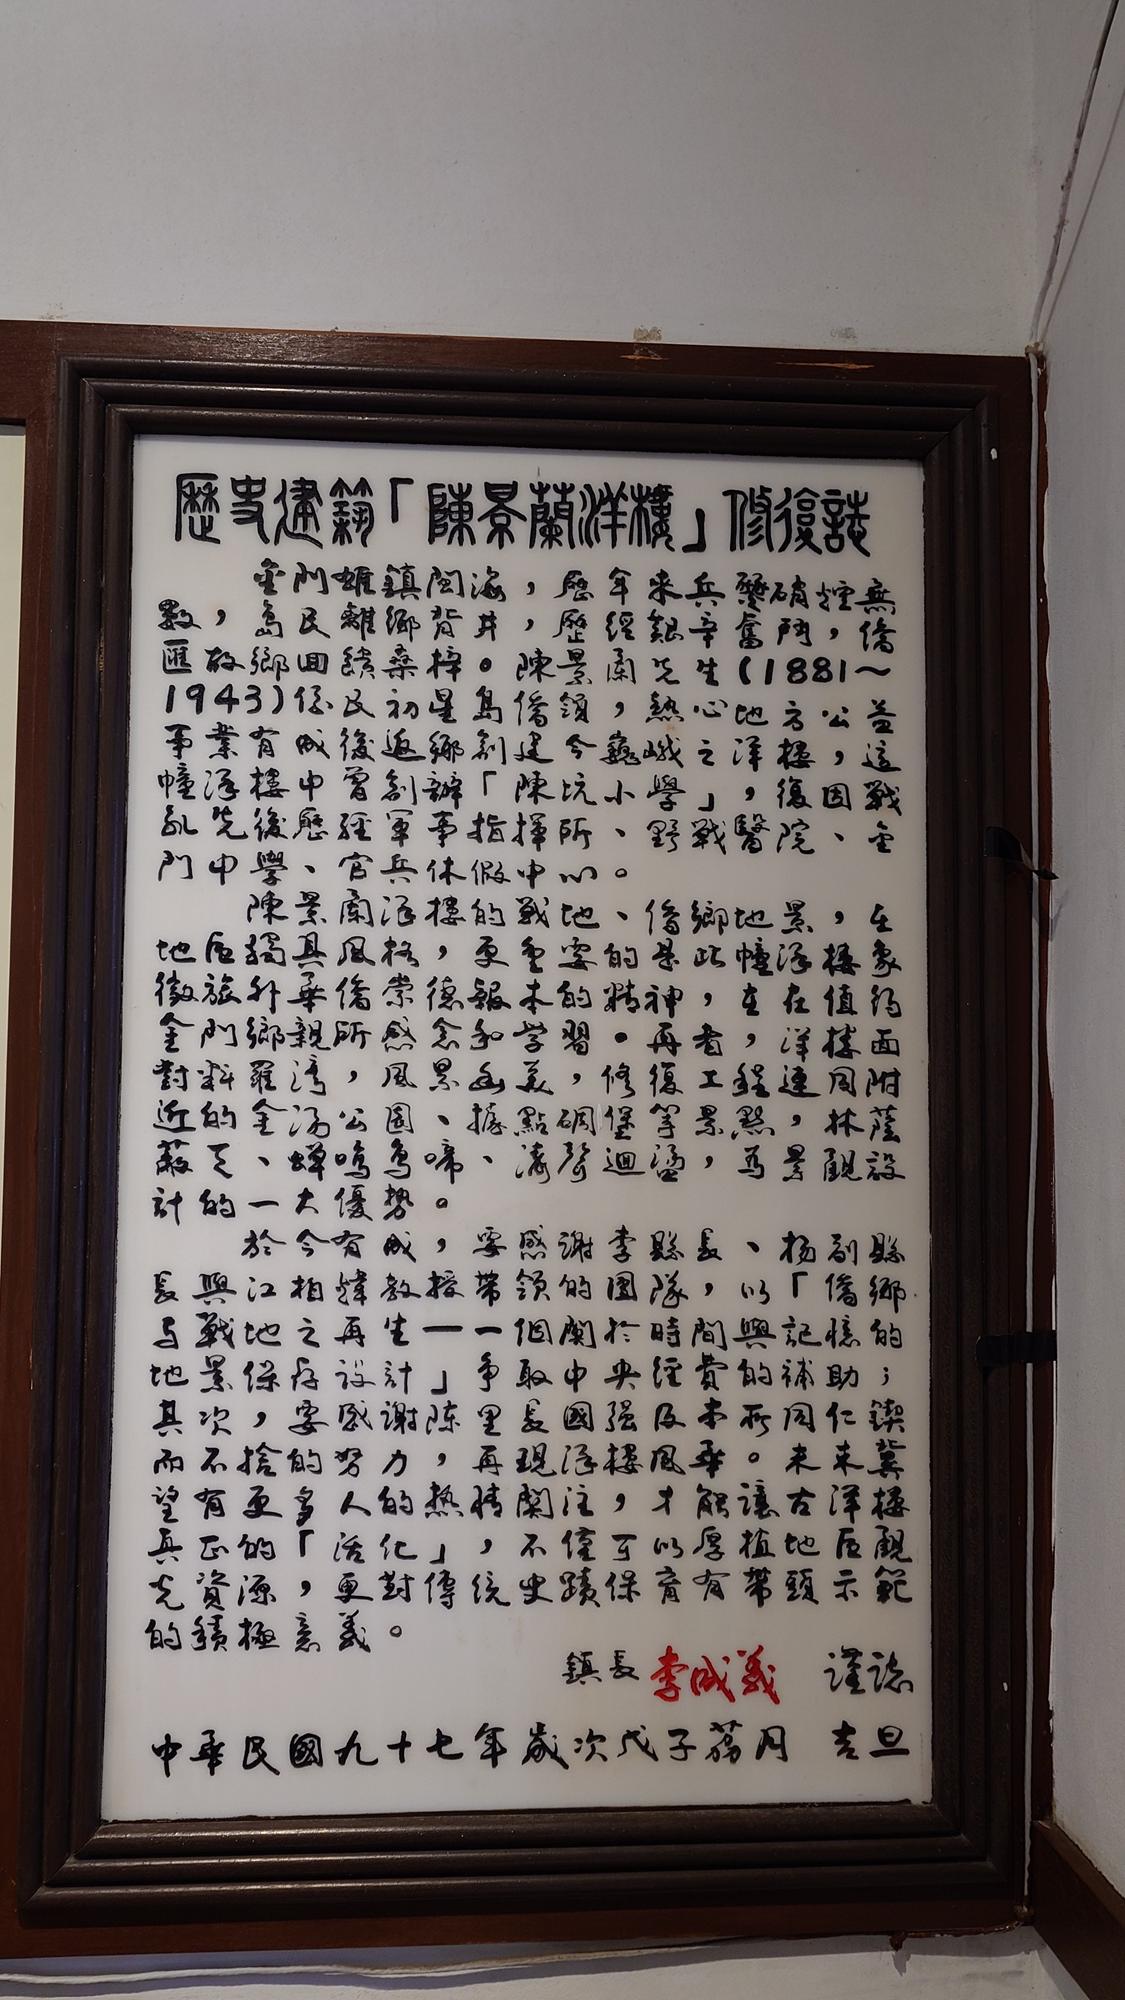 歷史建築「陳景蘭洋樓」修復誌
金門雄鎮閩海，歷年來兵燹硝煙無
數，島民離鄉背井，歷經艱辛奮鬥，僑
匯故鄉回饋桑梓。陳景蘭先生(1881~
1943)係民初星島僑領，熱心地方公益
事業有成後返鄉創建今巍峨之洋樓，這
幢洋樓中曾創辦「陳坑小學」，復因戰
亂先後歷經軍事指揮所、野戰醫院、金
門中學、官兵休假中心。
陳景蘭洋樓的戰地、僑鄉地景，在
地區獨具風格，更重要的是此幢洋樓象
徵旅外華僑崇德報本的精神，在在值得
金門鄉親所感念和学習。再者，洋樓面
對料羅湾，風景幽美，修復工程連同附
近的金湯公園、據點碉堡等景點，林蔭
蔽天、蟬鳴鳥啼、濤聲迴盪，為景觀設
計的一大優勢。
於今有成，要感謝李縣長、楊副縣
長與江柏煒教授帶領的團隊，以「僑鄉
与戰地之再生——個関於時間與記憶的
地景保存設計」爭取中央經費的補助；
其次，要感謝陳里長國強及本所同仁鍥
而不捨的努力，再現洋樓風華。未来冀
望有更多人的熱情関注，才能讓古洋樓
真正的「活化」，不僅可以厚植地區觀
光資源，更對傳統史蹟保育有帶頭示範
的積極意義。
鎮長 李成義 謹誌
中華民國九十七年歲次戊子荔月 吉旦